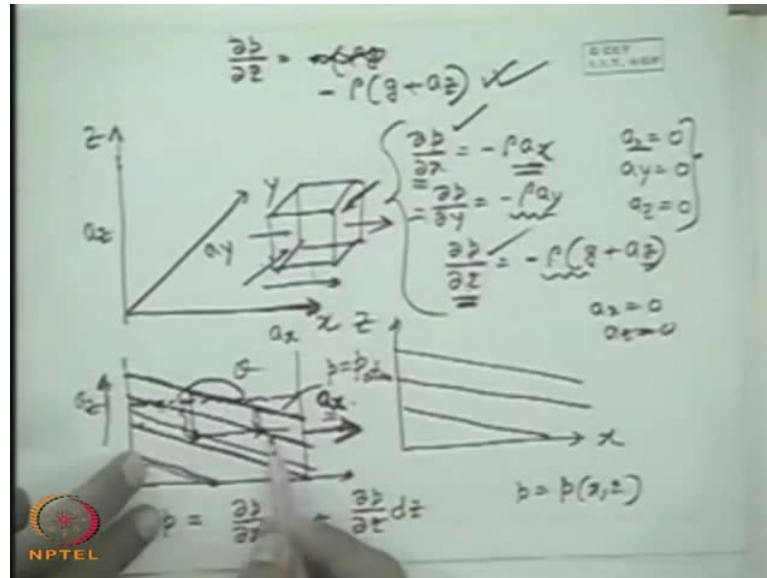 ∂p/∂z =
- ρ(g + az)
© CET
I.I.T. KGP
z
az
ay
y
x
ax
∂p/∂x = - ρax
∂p/∂y = - ρay
∂p/∂z = - ρ(g + az)
ax = 0
ay = 0
az = 0
ax = 0
az = 0
az
θ
p = patm
ax
z
x
p = p(x, z)
p = ∂p/∂x + ∂p/∂z dz
NPTEL